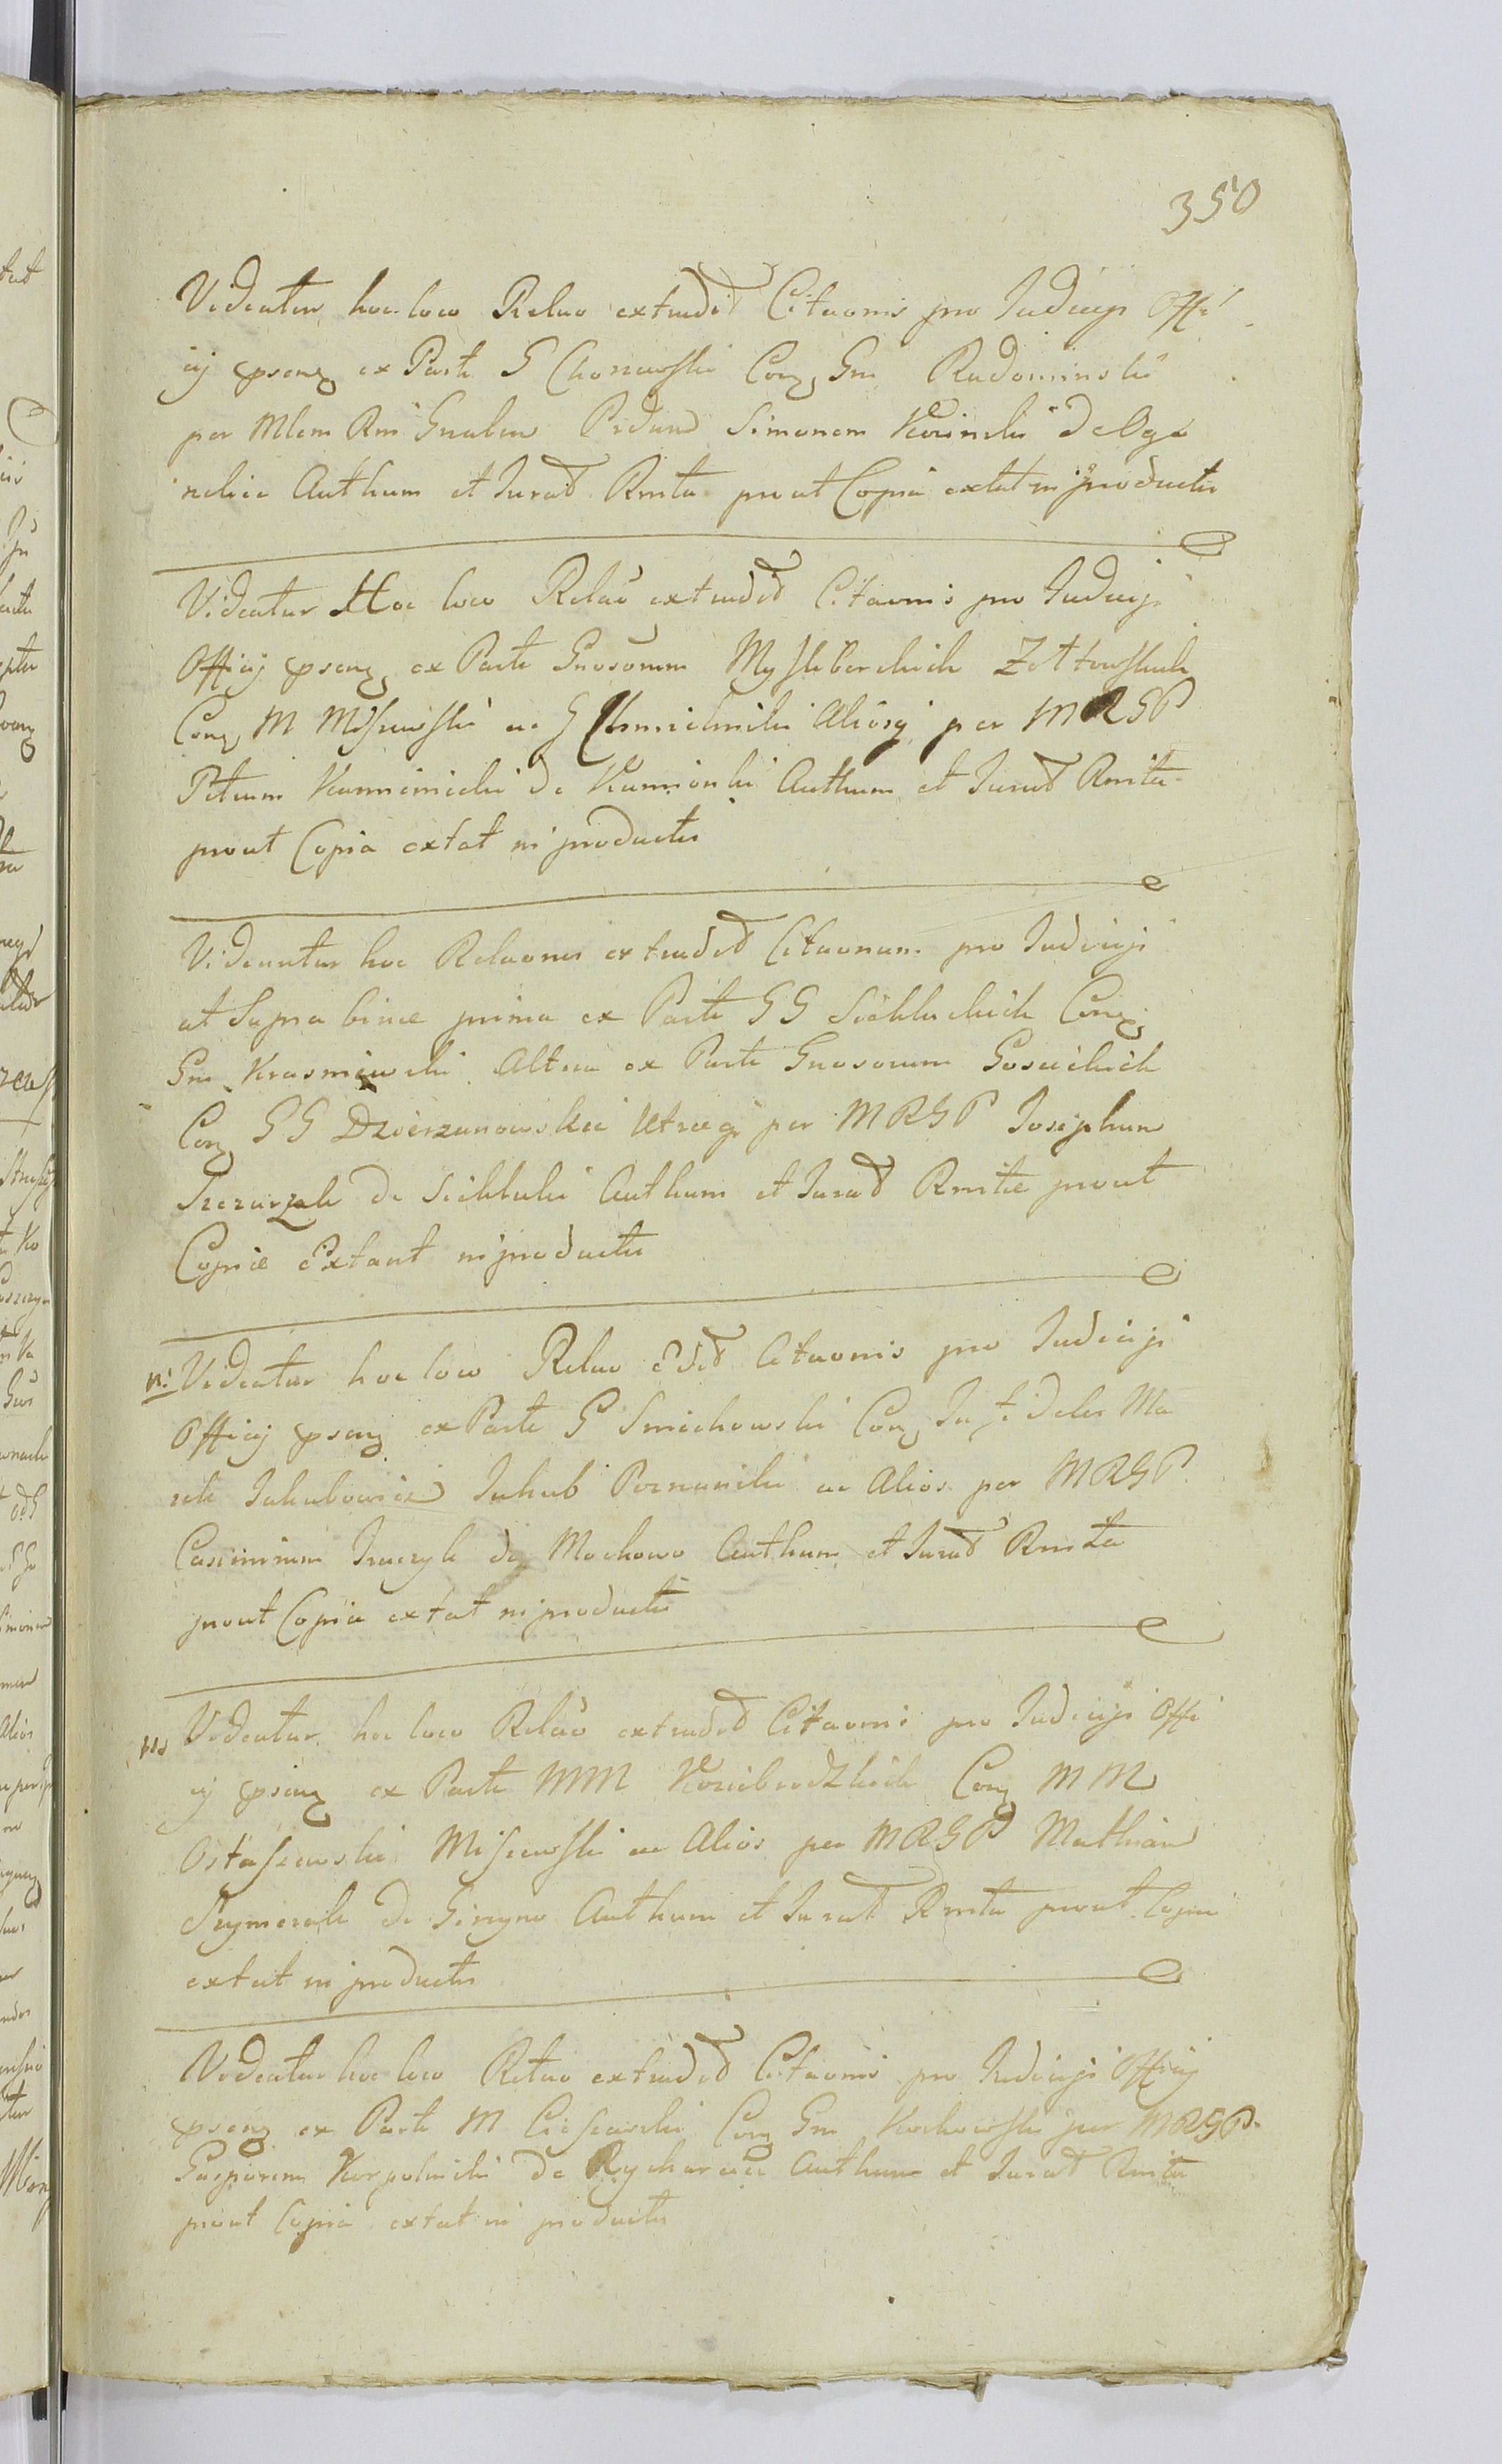 350
Videatur hoc loco Relao extradit Citaonis pro Judicijs Offi
cij psenq ex Parte G Chonowski Conq Gm Radominski
per Mlem Rm Gnalem Pdum Simonem Kozinski de Ogo
nelice Authum et Jurat Rmta prout Copia extat in productis
Videatur Hoc loco Relao extradit Citaonis pro Judicijs
Officij psenq ex Parte Gnosorum Mysliborskich Zottowskich
Conq M Misiewski ac G Chmielinski Aliosq per MRGP
Petrum Kamienicki de Kamionki Authum et Jurat Rmta
prout Copia extat in productis
Videantur hoc Relaones extradit Citaonum pro Judicijs
ut Supra binæ prima ex Parte GG Sieklickich Conq
Gm Krasniewski Altera ex Parte Gnosorum Gosiickich
Conq GG Dzierzanowskie Utræq per MRGP Josephum
de Sieklulei Authum et Jurat Rmtæ prout
Copiæ Extant in productis
n: Videatur hoc loco Relao Edit Citaonis pro Judicijs
Officij psenq ex Parte G Smiechowski Conq Infideles Ma
rek Jakubowicz Jakub Poznanski ac Alios per MRGP
Casimirum de Mochowo Authum et Jurat Rmta
prout Copia extat in productis
Videatur hoc loco Relao extradit Citaonis pro Judicijs Offi
cij psenq ex Parte MM Koziebrodzkich Conq MM
Ostaszewski Misiewski ac Alios per MRGP Mathiam
Szymczak de Authum et Jurat Rmta prout Copia
extat in productis
Videatur hoc loco Relao extradit Citaonis pro Judicijs Officij
psenq ex Parte M Cissewski Conq Gm Kochowski per MRGP
Gasparem Karpolinski de Rycharcice Authum et Jurat Rmta
prout Copia extat in productis